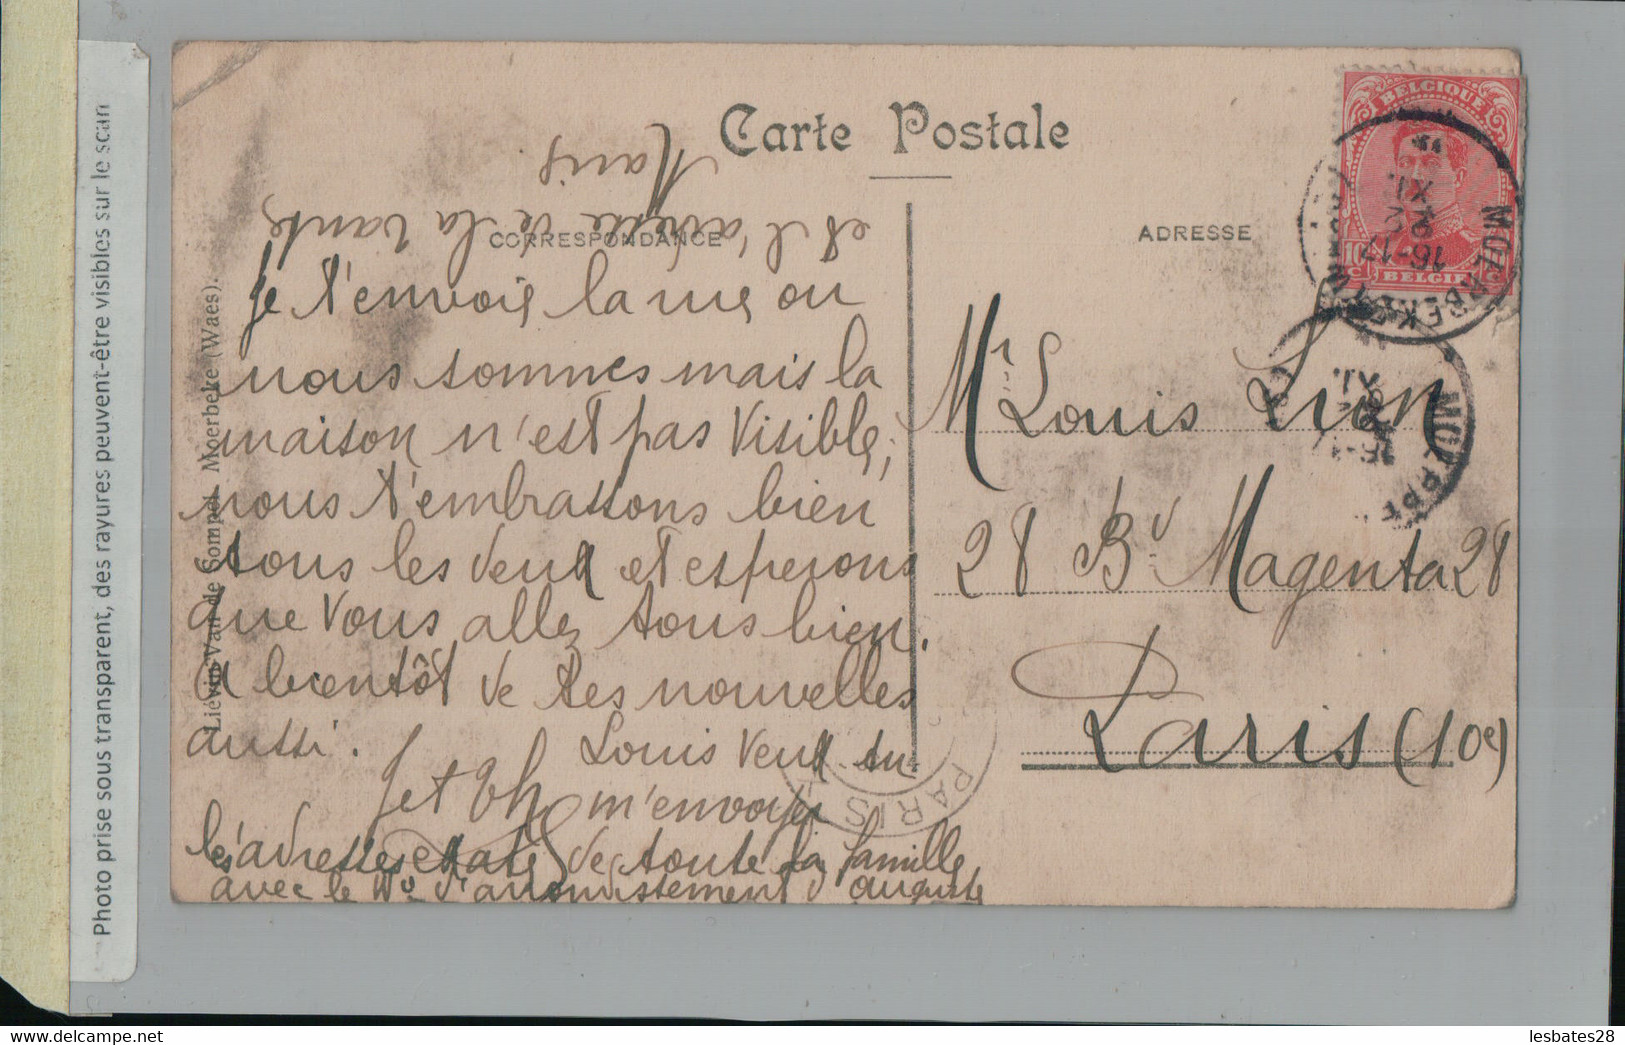 Photo prise sous transparent, des rayures peuvent-être visibles sur le scan
Carte Postale
CORRESPONDANCE
ADRESSE
Liévin Van de Sompel, Moerbeke (Waes).
BELGIQUE
10 c
BELGIË
MOERBEKE
16-17
XI.
Je t'envoie la rue ou
nous sommes mais la
maison n'est pas visible,
nous t'embrassons bien
tous les deux et esperons
que vous allez tous bien.
A bientôt de tes nouvelles
aussi. Louis veux tu
m'envoyer
les adresses de toute la famille
avec le No d'arrondissement d'auguste
et l'adresse de la tante
Marie
Mr Louis
28 Bd Magenta 28
Paris (10e)
PARIS
lesbates28